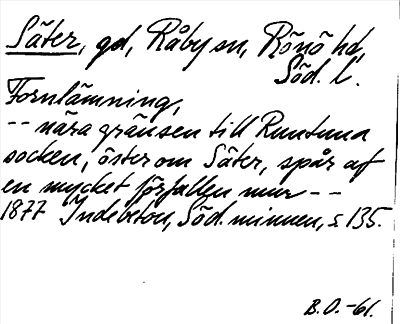 Säter, gd, Råby sn, Rönö hd,
Söd. l.
Fornlämning,
-- nära gränsen till Runtuna
socken, öster om Säter, spår af
en mycket förfallen mur --
1877 Indebetou, Söd. minnen, s 135.
B.O. -61.